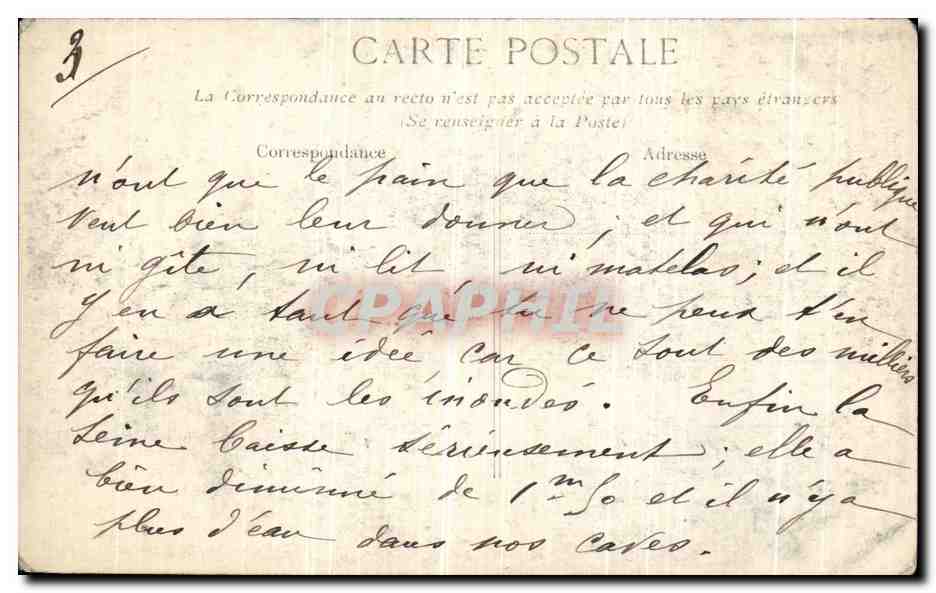 3
CARTE POSTALE
La Correspondance au recto n'est pas acceptée par tous les pays étrangers
(Se renseigner à la Poste)
Correspondance
Adresse
n'ont que le pain que la charité publique
veut bien leur donner ; et qui n'ont
ni gîte, ni lit ni matelas ; et il
y en a tant que tu ne peux t'en
faire une idée, car ce sont des milliers
qu'ils sont les inondés. Enfin la
Seine baisse sérieusement ; elle a
bien diminué de 1m50 et il n'y a
plus d'eau dans nos caves.
CPAPHIL